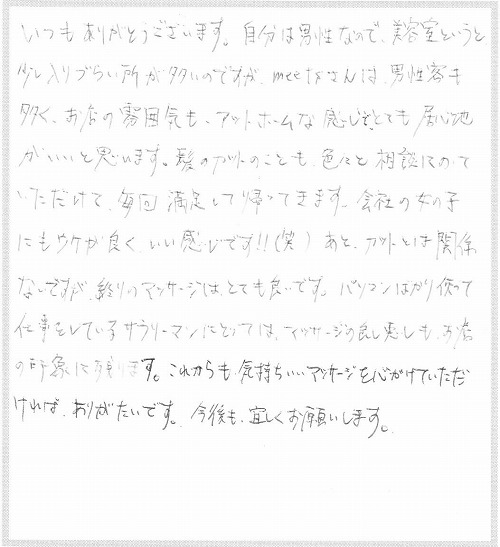 いつもありがとうございます。自分は男性なので、美容室というと
少し入りづらい所が多いのですが、meetsさんは、男性客も
多く、お店の雰囲気も、アットホームな感じで、とても居心地
がいいと思います。髪のカットのことも、色々と相談にのって
いただけて、毎回満足して帰ってきます。会社の女の子
にもウケが良く、いい感じです!!(笑)あと、カットとは関係
ないですが、終りのマッサージは、とても良いです。パソコンばかり使って
仕事をしているサラリーマンにとっては、マッサージの良し悪しも、お店
の印象に残ります。これからも、気持ちいいマッサージを心がけていただ
ければ、ありがたいです。今後も、宜しくお願いします。